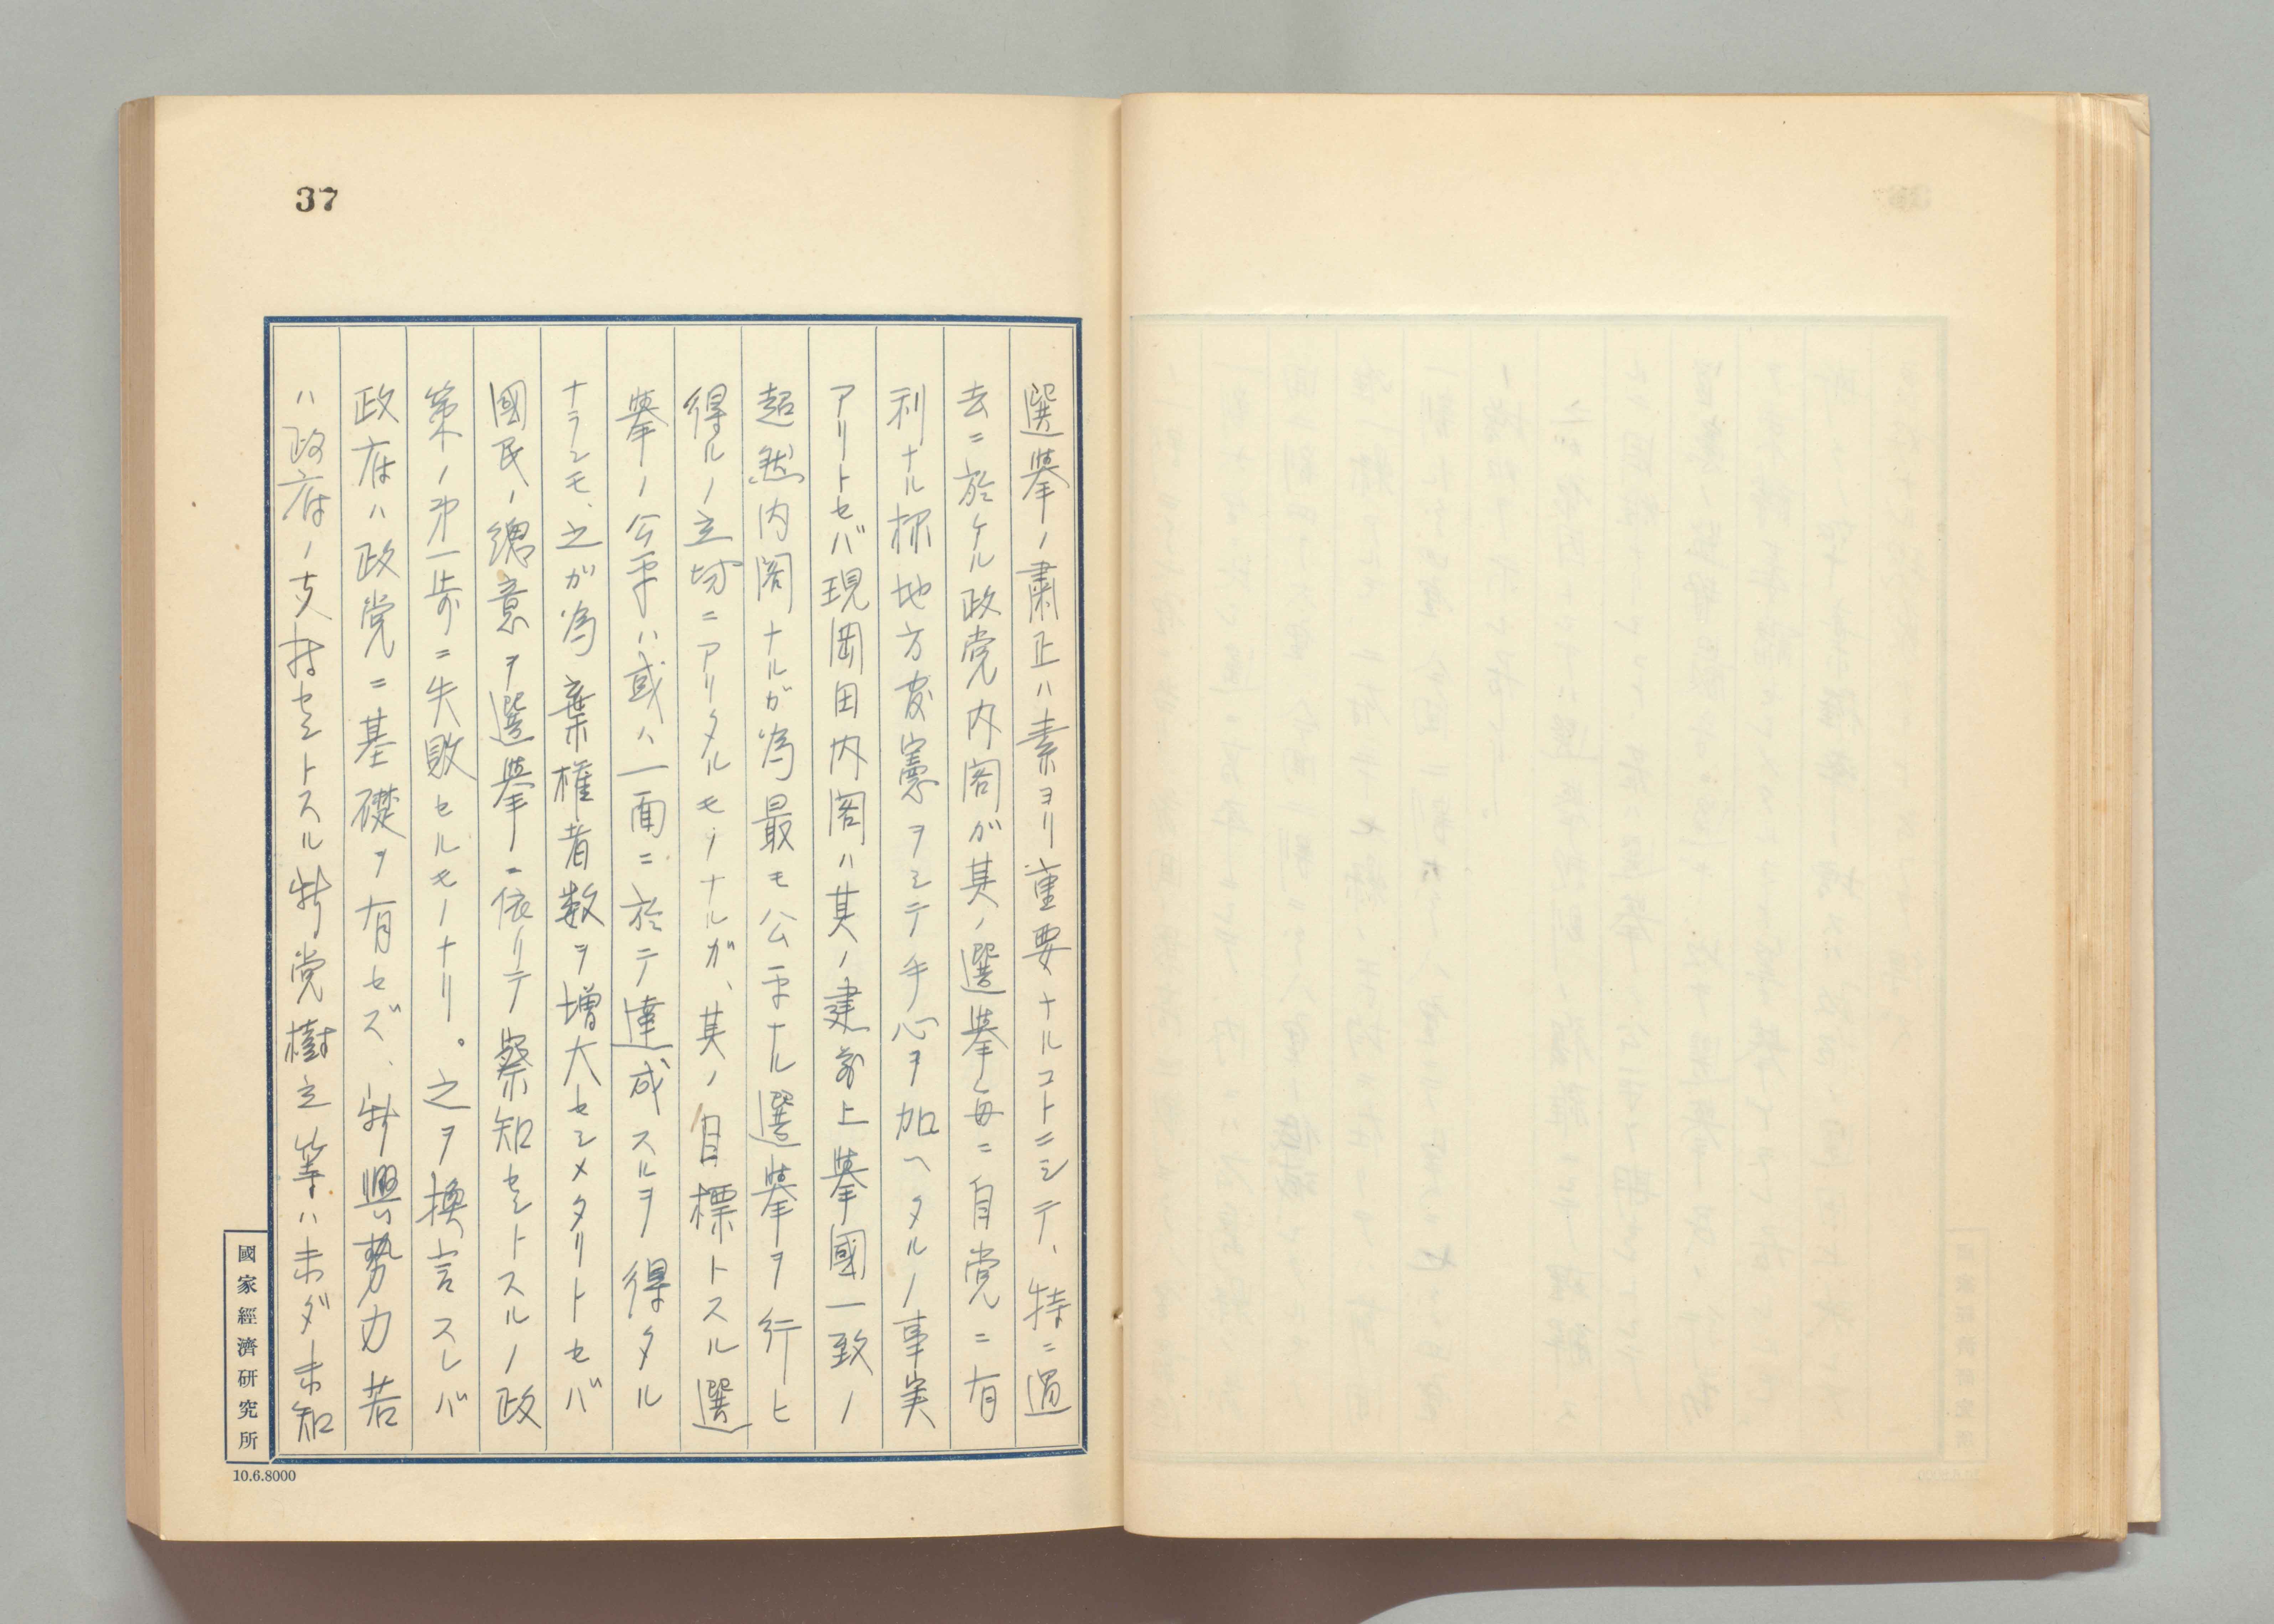 37
選挙ノ粛正ハ素ヨリ重要ナルコトニシテ、特ニ過
去ニ於ケル政党内閣ガ其ノ選挙毎ニ自党ニ有
利ナル様地方官憲ヲシテ手心ヲ加ヘタルノ事実
アリトセバ現岡田内閣ハ其ノ建前上挙國一致ノ
超然内閣ナルガ為最モ公平ナル選挙ヲ行ヒ
得ルノ立場ニアリタルモノナルガ、其ノ目標トスル選
挙ノ公平ハ或ハ一面ニ於テ達成スルヲ得タル
ナランモ、之ガ為棄権者数ヲ増大セシメタリトセバ
國民ノ總意ヲ選挙ニ依リテ察知セントスルノ政
策ノ第一歩ニ失敗セルモノナリ。之ヲ換言スレバ
政府ハ政党ニ基礎ヲ有セズ、新興勢力若
ハ政府ノ支持セントスル新党樹立等ハ未ダ未知
國家經濟研究所
10.6.8000